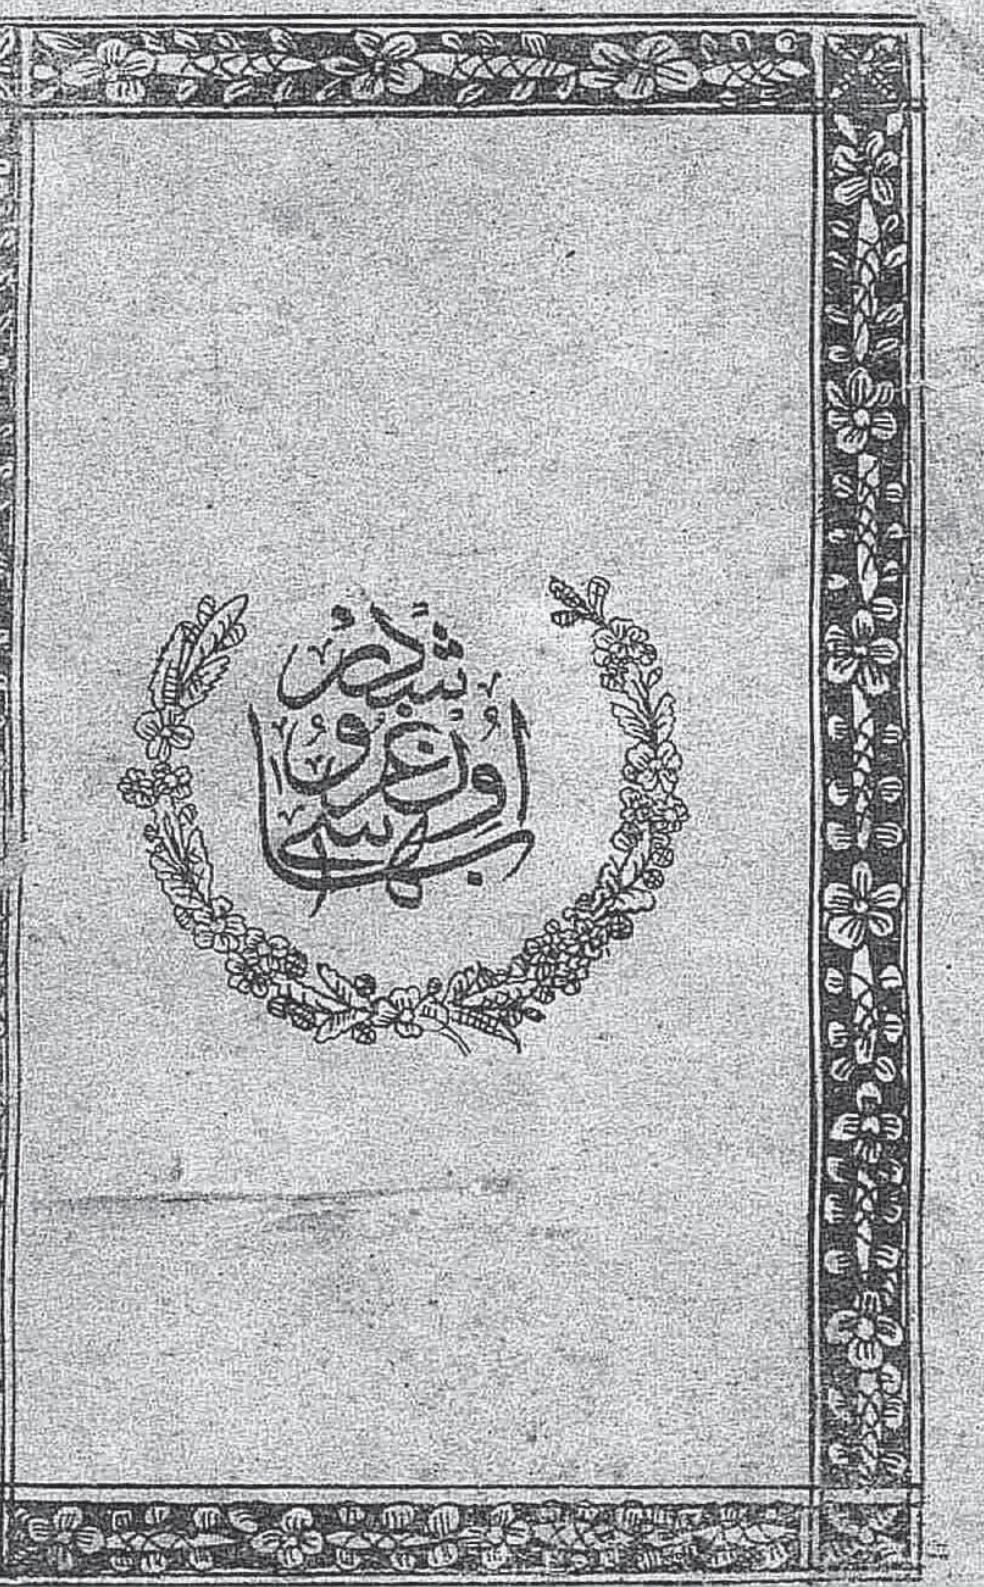 بهاسی
اون غرو
شدر